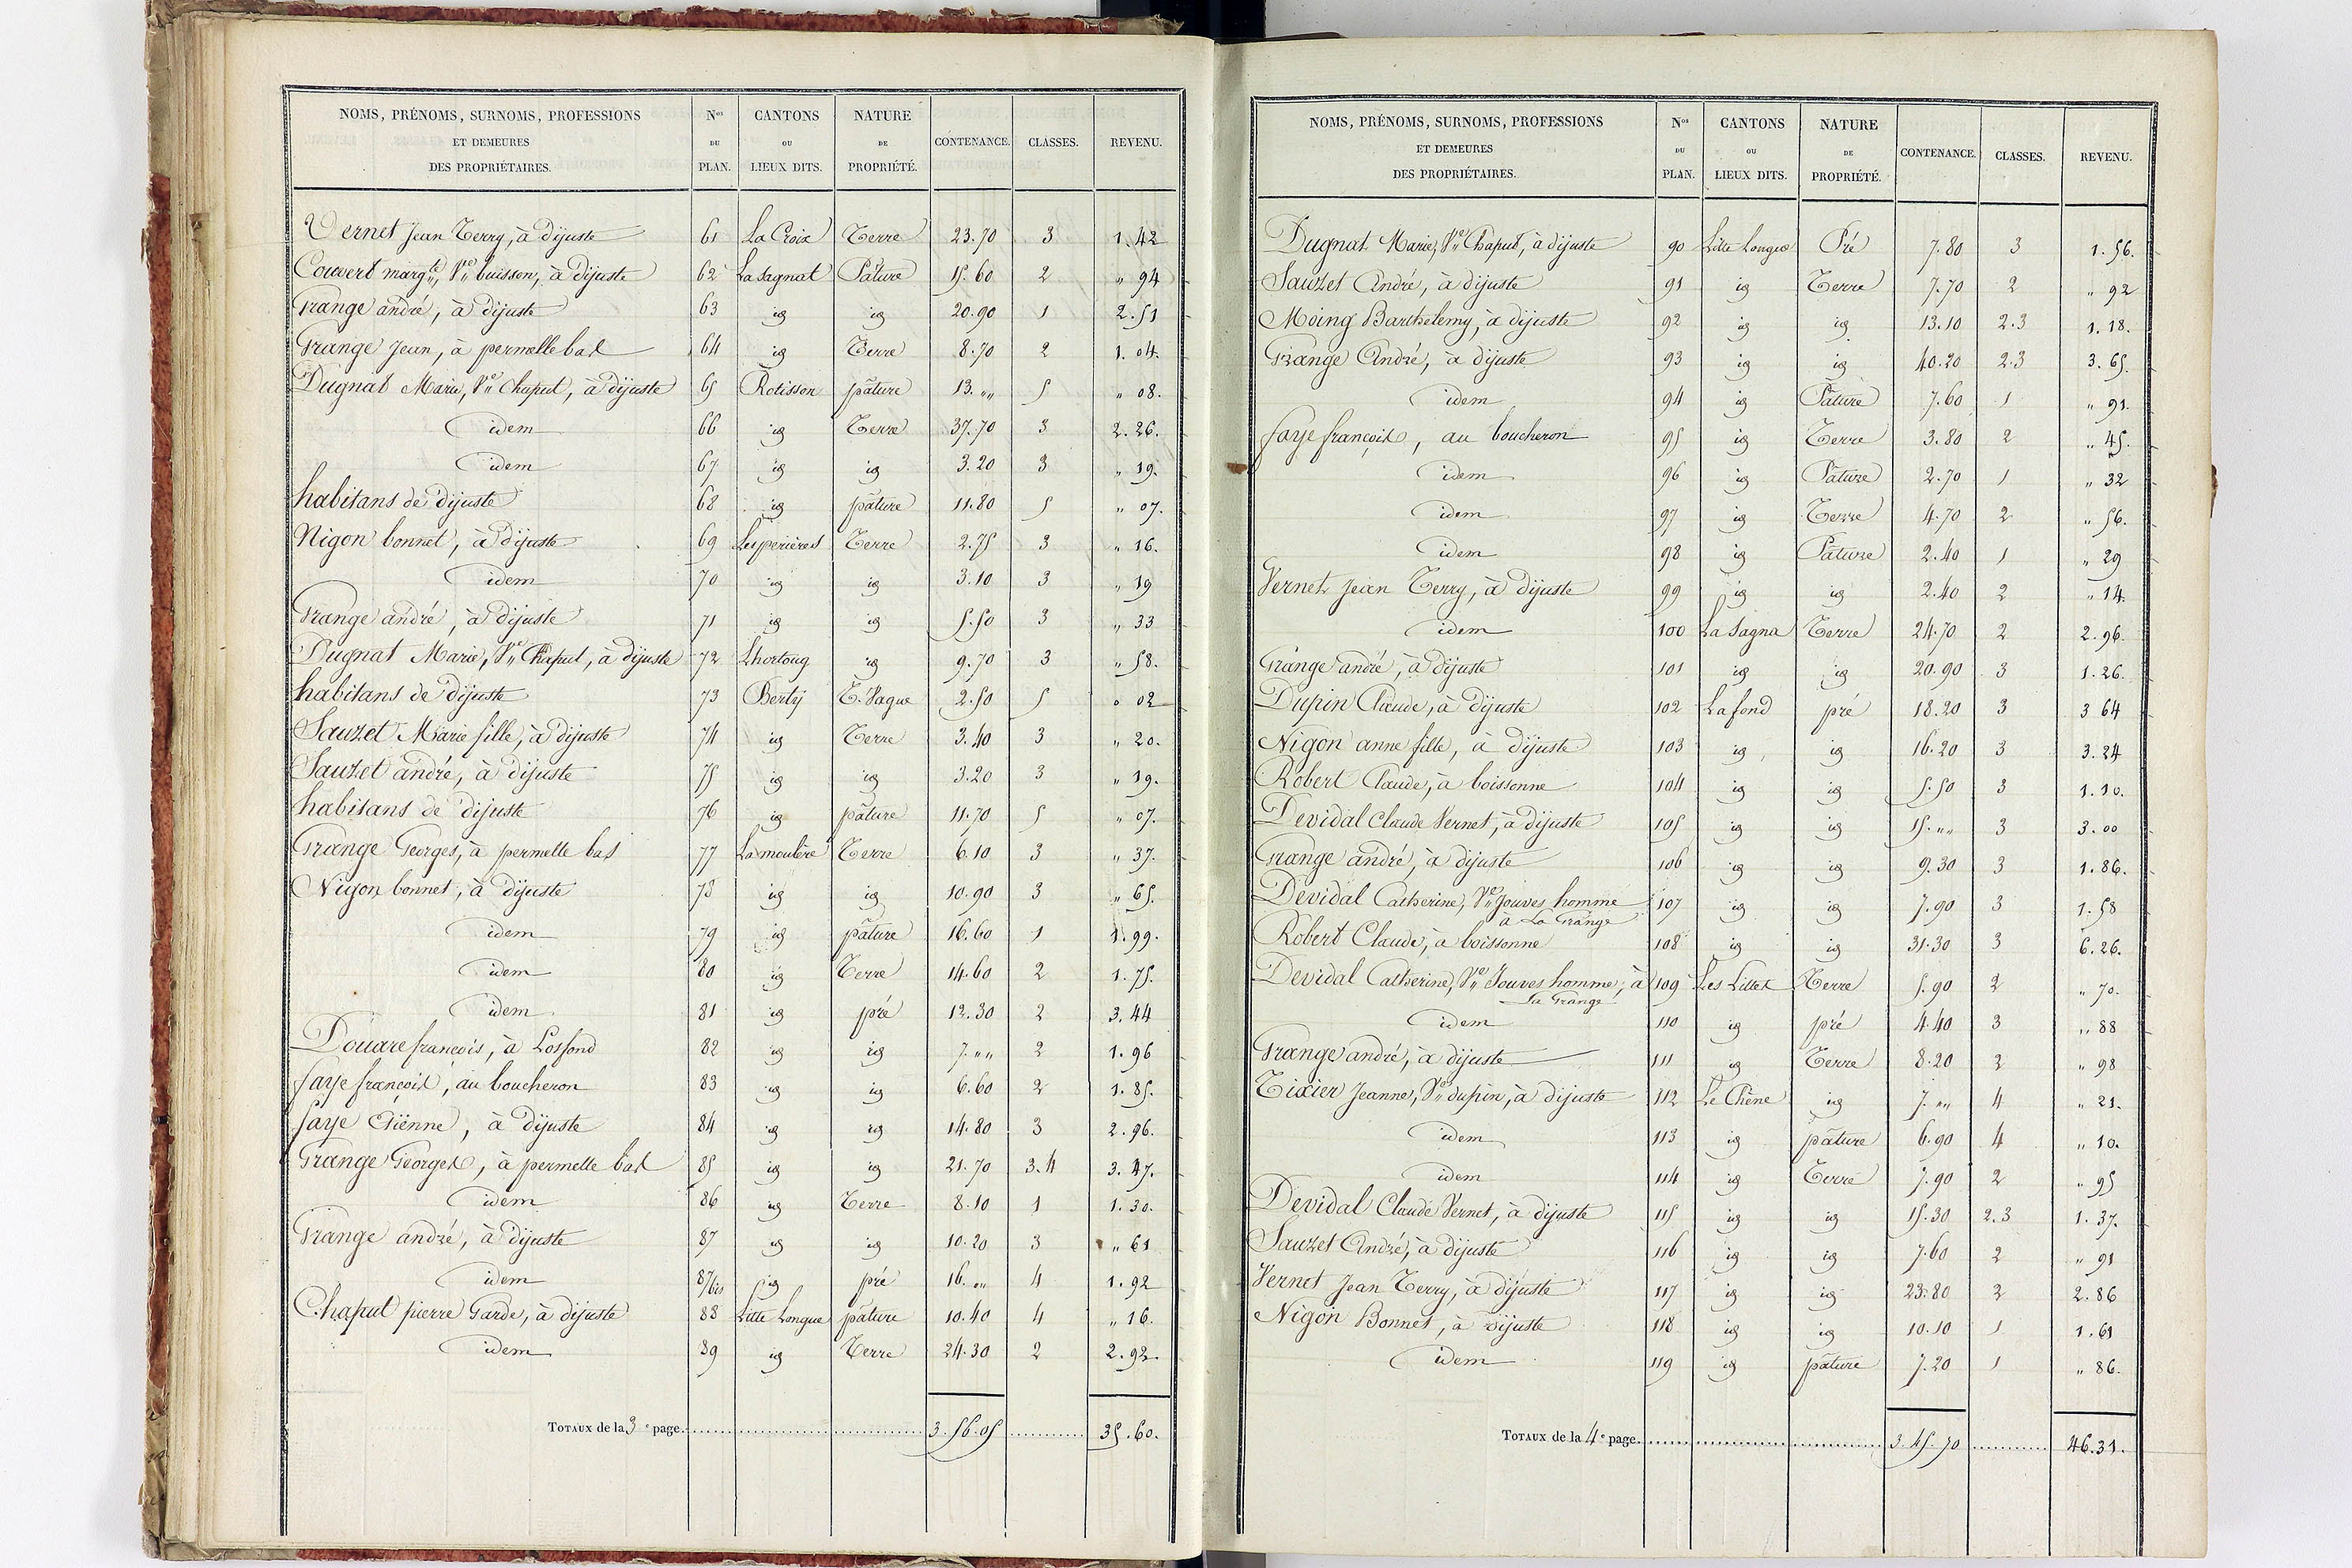 NOMS, PRÉNOMS, SURNOMS, PROFESSIONS ET DEMEURES DES PROPRIÉTAIRES. Nos DU PLAN. CANTONS OU LIEUX DITS. NATURE DE PROPRIÉTÉ. CONTENANCE. CLASSES. REVENU.
Vernet Jean Terry, à dijuste 61 La Croix Terre 23.70 3 1.42
Couvert margte, Ve buisson, à Dijuste 62 La Sagnat Pature 15.60 2 " 94
Grange andré, à dijuste 63 id id 20.90 1 2.51
Grange Jean, à permelle bas 64 id Terre 8.70 2 1.04
Dugnat Marie, Ve Chaput, à dijuste 65 Rotisson pâture 13. "" 5 " 08.
idem 66 id Terre 37.70 3 2.26.
idem 67 id id 3.20 3 " 19.
habitans de dijuste 68 id pâture 11.80 5 " 07.
Nigon bonnet, à Dijuste 69 Les perières Terre 2.75 3 " 16.
idem 70 id id 3.10 3 " 19
Grange andré, à dijuste 71 id id 5.50 3 " 33
Dugnat Marie, Ve Chaput, à dijuste 72 Lhortoug id 9.70 3 " 58.
habitans de Dijuste 73 Berty T. Vague 2.50 5 " 02
Sauzet Marie fille, à dijuste 74 id Terre 3.40 3 " 20.
Sauzet andré, à dijuste 75 id id 3.20 3 " 19.
habitans de dijuste 76 id pâture 11.70 5 " 07.
Grange Georges, à permelle bas 77 La moulère Terre 6.10 3 " 37.
Nigon bonnet, à Dijuste 78 id id 10.90 3 " 65.
idem 79 id pâture 16.60 1 1.99.
idem 80 id Terre 14.60 2 1.75.
idem 81 id pré 12.30 2 3.44
Douare françois, à Losfond 82 id id 7. "" 2 1.96
faye françois, au boucheron 83 id id 6.60 2 1.85.
faye Etienne, à Dijuste 84 id id 14.80 3 2.96.
Grange Georges, à permelle bas 85 id id 21.70 3.4 3.47.
idem 86 id Terre 8.10 1 1.30.
Grange andré, à Dijuste 87 id id 10.20 3 " 61
idem 87bis id pré 16. "" 4 1.92
Chaput pierre Garde, à dijuste 88 Litte Longue pâture 10.40 4 " 16.
idem 89 id Terre 24.30 2 2.92.
TOTAUX de la 3e page. 3.56.05 35.60.
NOMS, PRÉNOMS, SURNOMS, PROFESSIONS ET DEMEURES DES PROPRIÉTAIRES. Nos DU PLAN. CANTONS OU LIEUX DITS. NATURE DE PROPRIÉTÉ. CONTENANCE. CLASSES. REVENU.
Dugnat Marie, Ve Chaput, à dijuste 90 Litte Longue Pré 7.80 3 1.56.
Sauzet André, à dijuste 91 id Terre 7.70 2 " 92
Moing Barthelemy, à dijuste 92 id id 13.10 2.3 1.18.
Grange André, à dijuste 93 id id 40.20 2.3 3.65.
idem 94 id Pâture 7.60 1 " 91.
faye françois, au boucheron 95 id Terre 3.80 2 " 45.
idem 96 id Pâture 2.70 1 " 32
idem 97 id Terre 4.70 2 " 56.
idem 98 id Pature 2.40 1 " 29
Vernet Jean Terry, à dijuste 99 id id 2.40 2 " 14.
idem 100 La Sagna Terre 24.70 2 2.96.
Grange andré, à dijuste 101 id id 20.90 3 1.26.
Dupin Claude, à Dijuste 102 La fond pré 18.20 3 3 64
Nigon anne fille, à dijuste 103 id id 16.20 3 3.24
Robert Claude, à boissonne 104 id id 5.50 3 1.10.
Devidal Claude Vernet, à dijuste 105 id id 15. "" 3 3.00
Grange andré, à dijuste 106 id id 9.30 3 1.86.
Devidal Catherine, Ve Jouves homme 107 id id 7.90 3 1.58
à La Grange
Robert Claude, à boissonne 108 id id 31.30 3 6.26.
Devidal Catherine, Ve Jouves homme, à 109 Les Littes Terre 5.90 2 " 70.
La Grange
idem 110 id pré 4.40 3 " 88
Grange andré, à dijuste 111 id Terre 8.20 2 " 98
Tixier Jeanne, Ve dupin, à dijuste 112 Le Chêne id 7. "" 4 " 21.
idem 113 id pâture 6.90 4 " 10.
idem 114 id Terre 7.90 2 " 95
Devidal Claude Vernet, à dijuste 115 id id 15.30 2.3 1.37.
Sauzet André, à dijuste 116 id id 7.60 2 " 91
Vernet Jean Terry, à dijuste 117 id id 23.80 2 2.86
Nigon Bonnet, à dijuste 118 id id 10.10 1 1.61
idem 119 id pâture 7.20 1 " 86.
TOTAUX de la 4e page. 3.45.70 46.31.